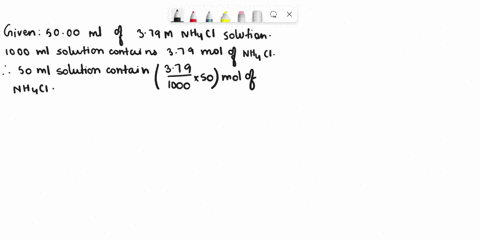 Given: 50.00 ml of 3.79 M NH4Cl solution.
1000 ml solution contains 3.79 mol of NH4Cl.
∴ 50 ml solution contain (3.79/1000 × 50) mol of
NH4Cl.